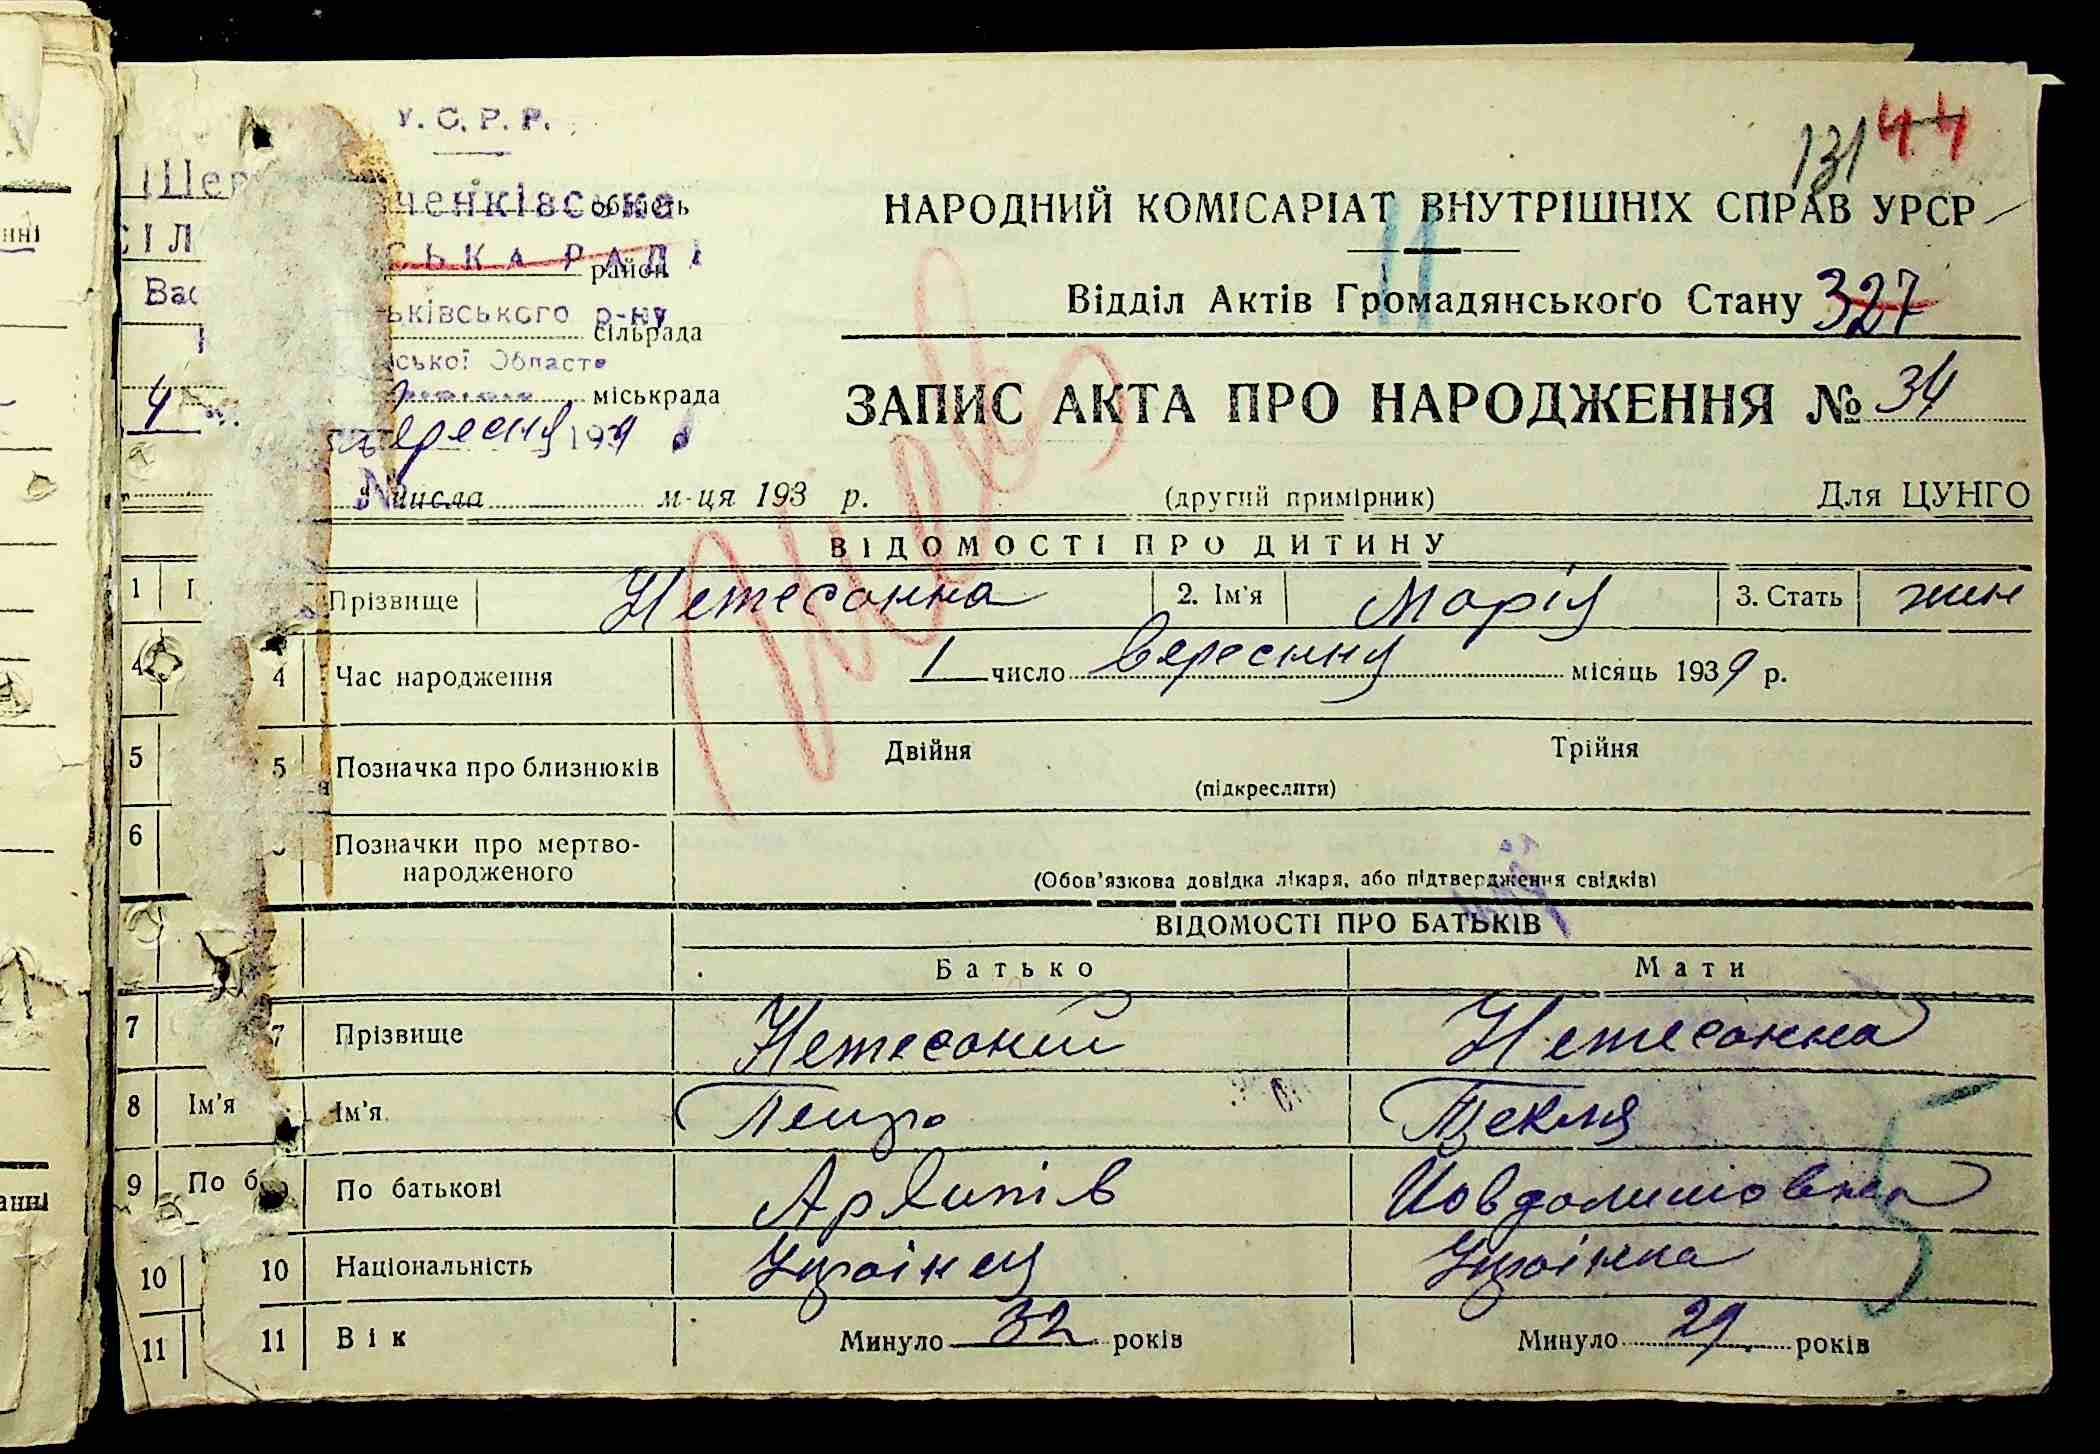 У. С. Р. Р.
131 44
ченківська область
НАРОДНИЙ КОМІСАРІАТ ВНУТРІШНІХ СПРАВ УРСР
СЬКА РАДА район
Відділ Актів Громадянського Стану 327
ьківського р-ну сільрада
ської Області
міськрада
ЗАПИС АКТА ПРО НАРОДЖЕННЯ № 34
4 вересня 1939
числа м-ця 193 р.
(другий примірник)
Для ЦУНГО
ВІДОМОСТІ ПРО ДИТИНУ
1 Прізвище Нетесанна 2. Ім'я Марія 3. Стать жин
4 4 Час народження 1 число вересння місяць 1939 р.
5 5 Позначка про близнюків Двійня Трійня
(підкреслити)
6 Позначки про мертво-
народженого
(Обов'язкова довідка лікаря, або підтвердження свідків)
ВІДОМОСТІ ПРО БАТЬКІВ
Батько Мати
7 7 Прізвище Нетесаний Нетесанна
8 Ім'я Ім'я Петро Текля
9 По б По батькові Архипів
10 10 Національність Українец Українка
11 11 Вік Минуло 32 років Минуло 29 років